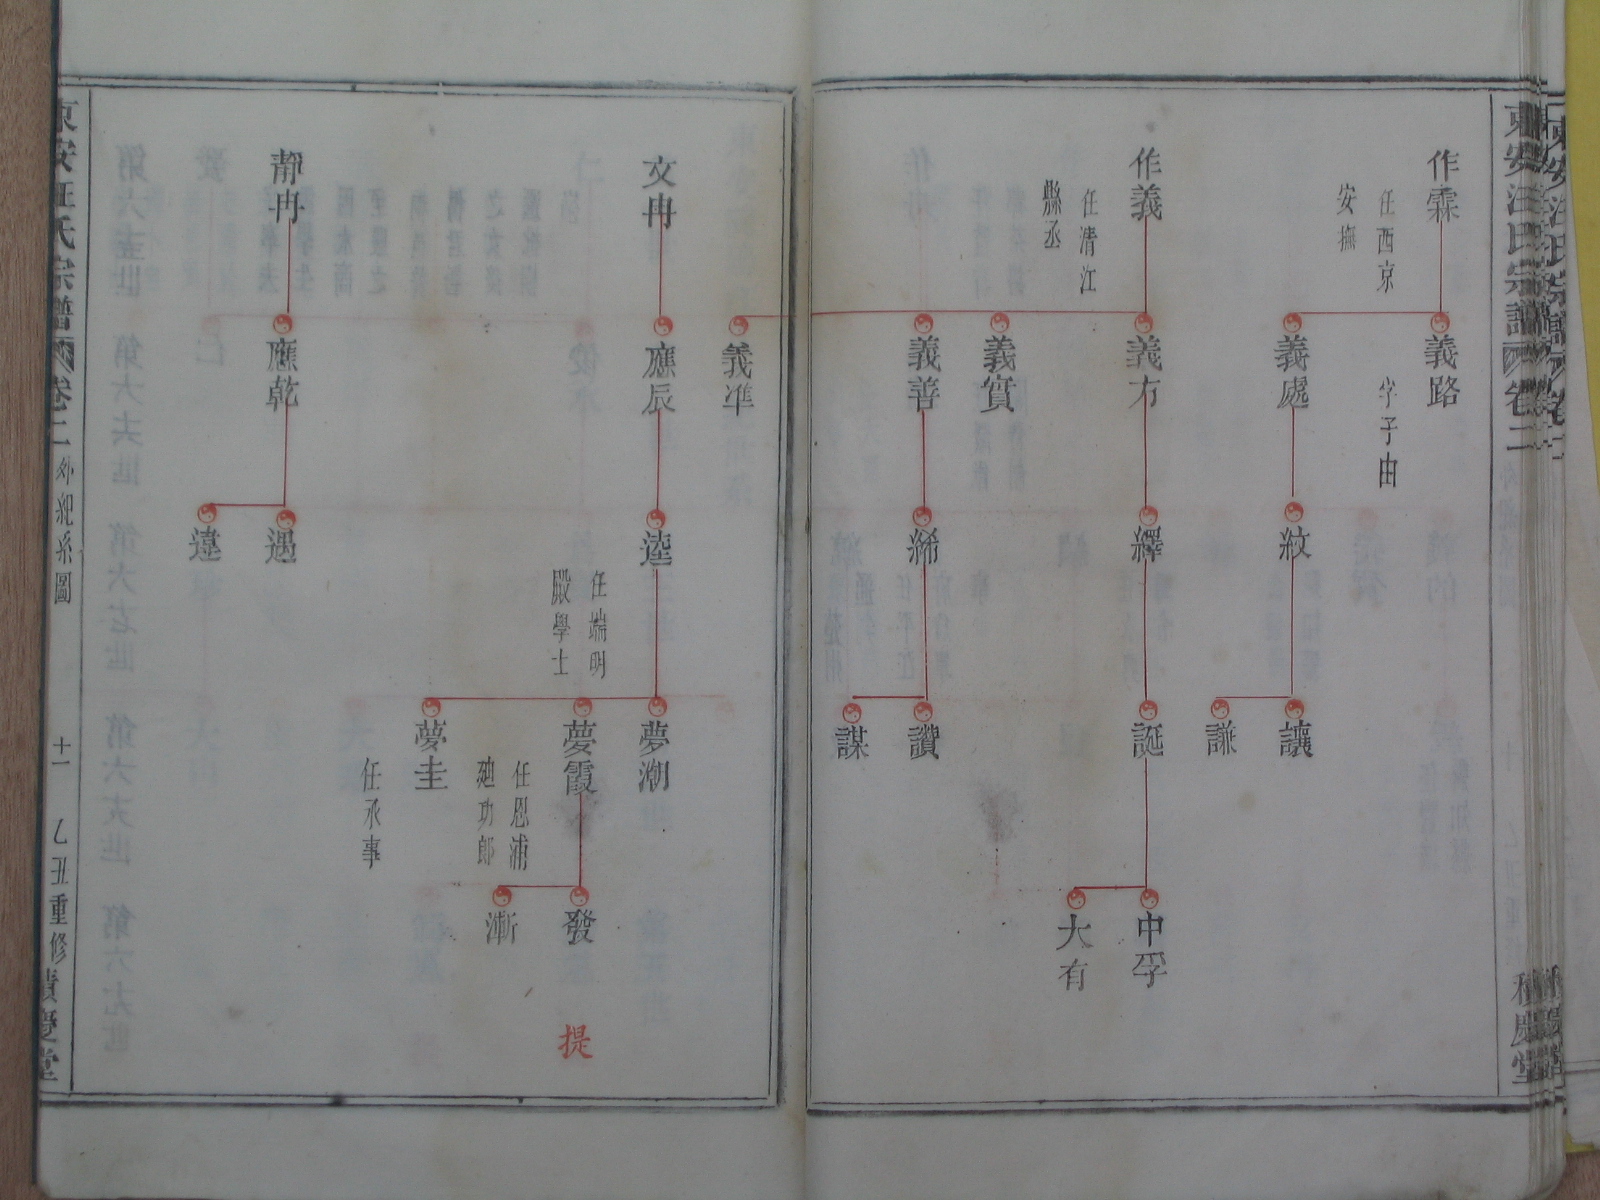 東安汪氏宗譜
卷二
積慶堂
作霖
任西京
安撫
義路
字子由
義處
紋
讓
謙
作義
任清江
縣丞
義方
繹
誕
中孚
大有
義實
義善
絺
讚
謀
義準
文冉
應辰
逵
任端明
殿學士
夢潮
夢霞
任恩浦
廸功郎
發
漸
提
夢圭
任承事
靜冉
應乾
遇
違
東安汪氏宗譜
卷二
外紀系圖
十一
乙丑重修
積慶堂